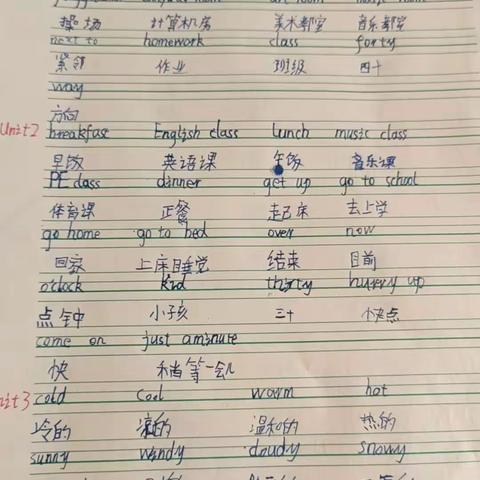 操场 计算机房 美术教室 音乐教室
next to homework class forty
紧邻 作业 班级 四十
way
方向
Unit2 breakfast English class lunch music class
早饭 英语课 午饭 音乐课
PE class dinner get up go to school
体育课 正餐 起床 去上学
go home go to bed over now
回家 上床睡觉 结束 目前
o'clock kid thirty hurry up
点钟 小孩 三十 快点
come on just aminute
快 稍等一会儿
cold cool warm hot
冷的 凉的 温和的 热的
sunny windy cloudy snowy